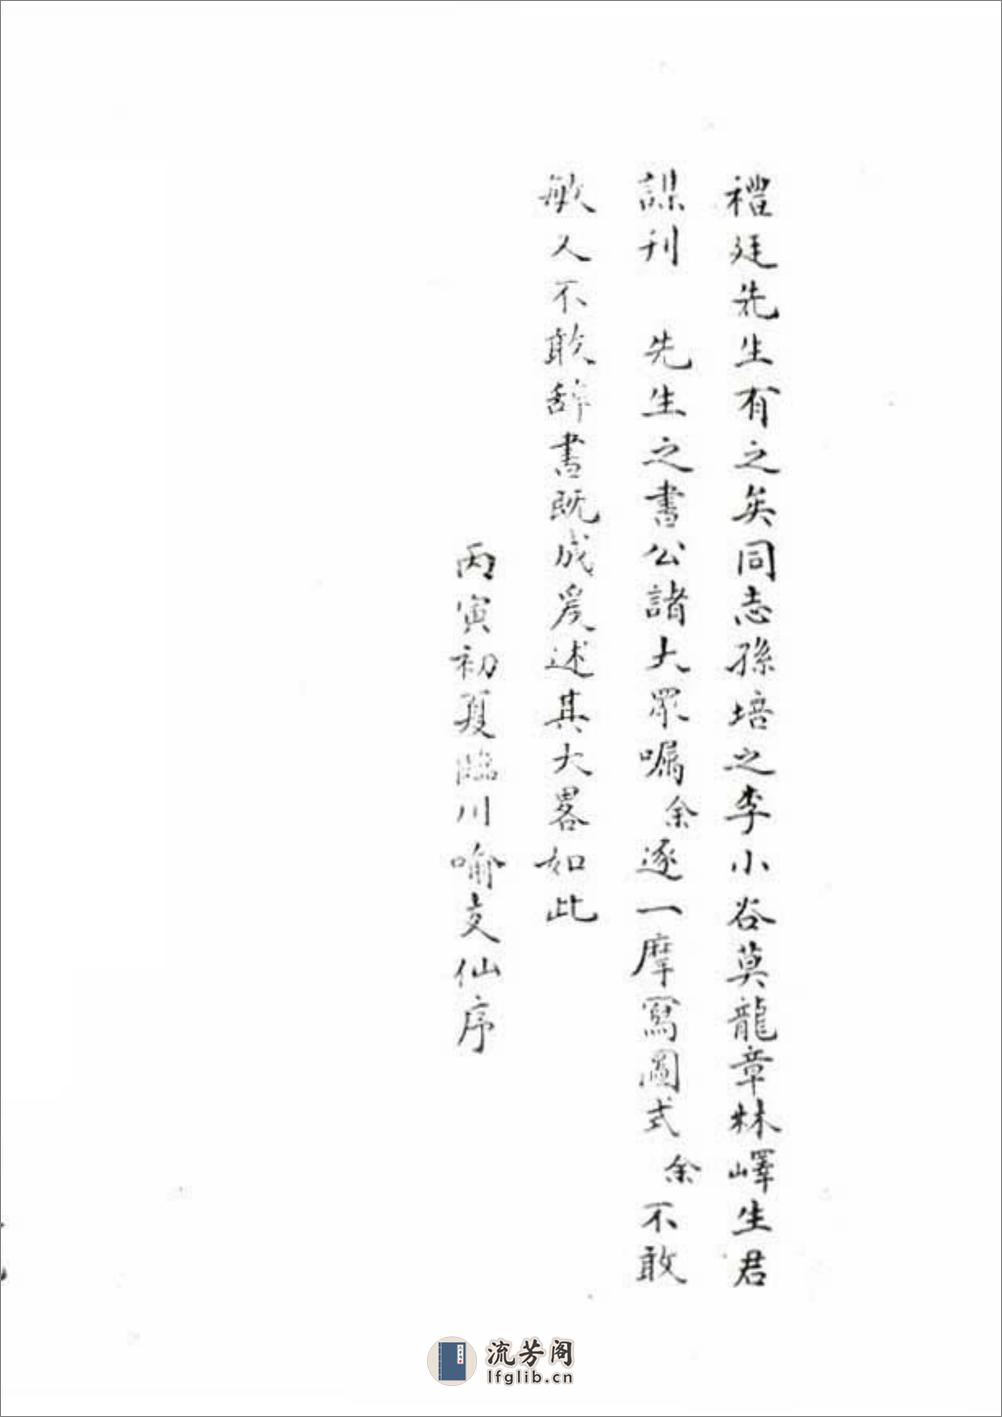 禮廷先生有之矣同志孫培之李小谷莫龍章林嶧生君
謀刊　先生之書公諸大眾囑余逐一摩寫圖式余不敢
敏又不敢辞書既成爰述其大畧如此
丙寅初夏臨川喻文仙序
流芳阁
lfglib.cn